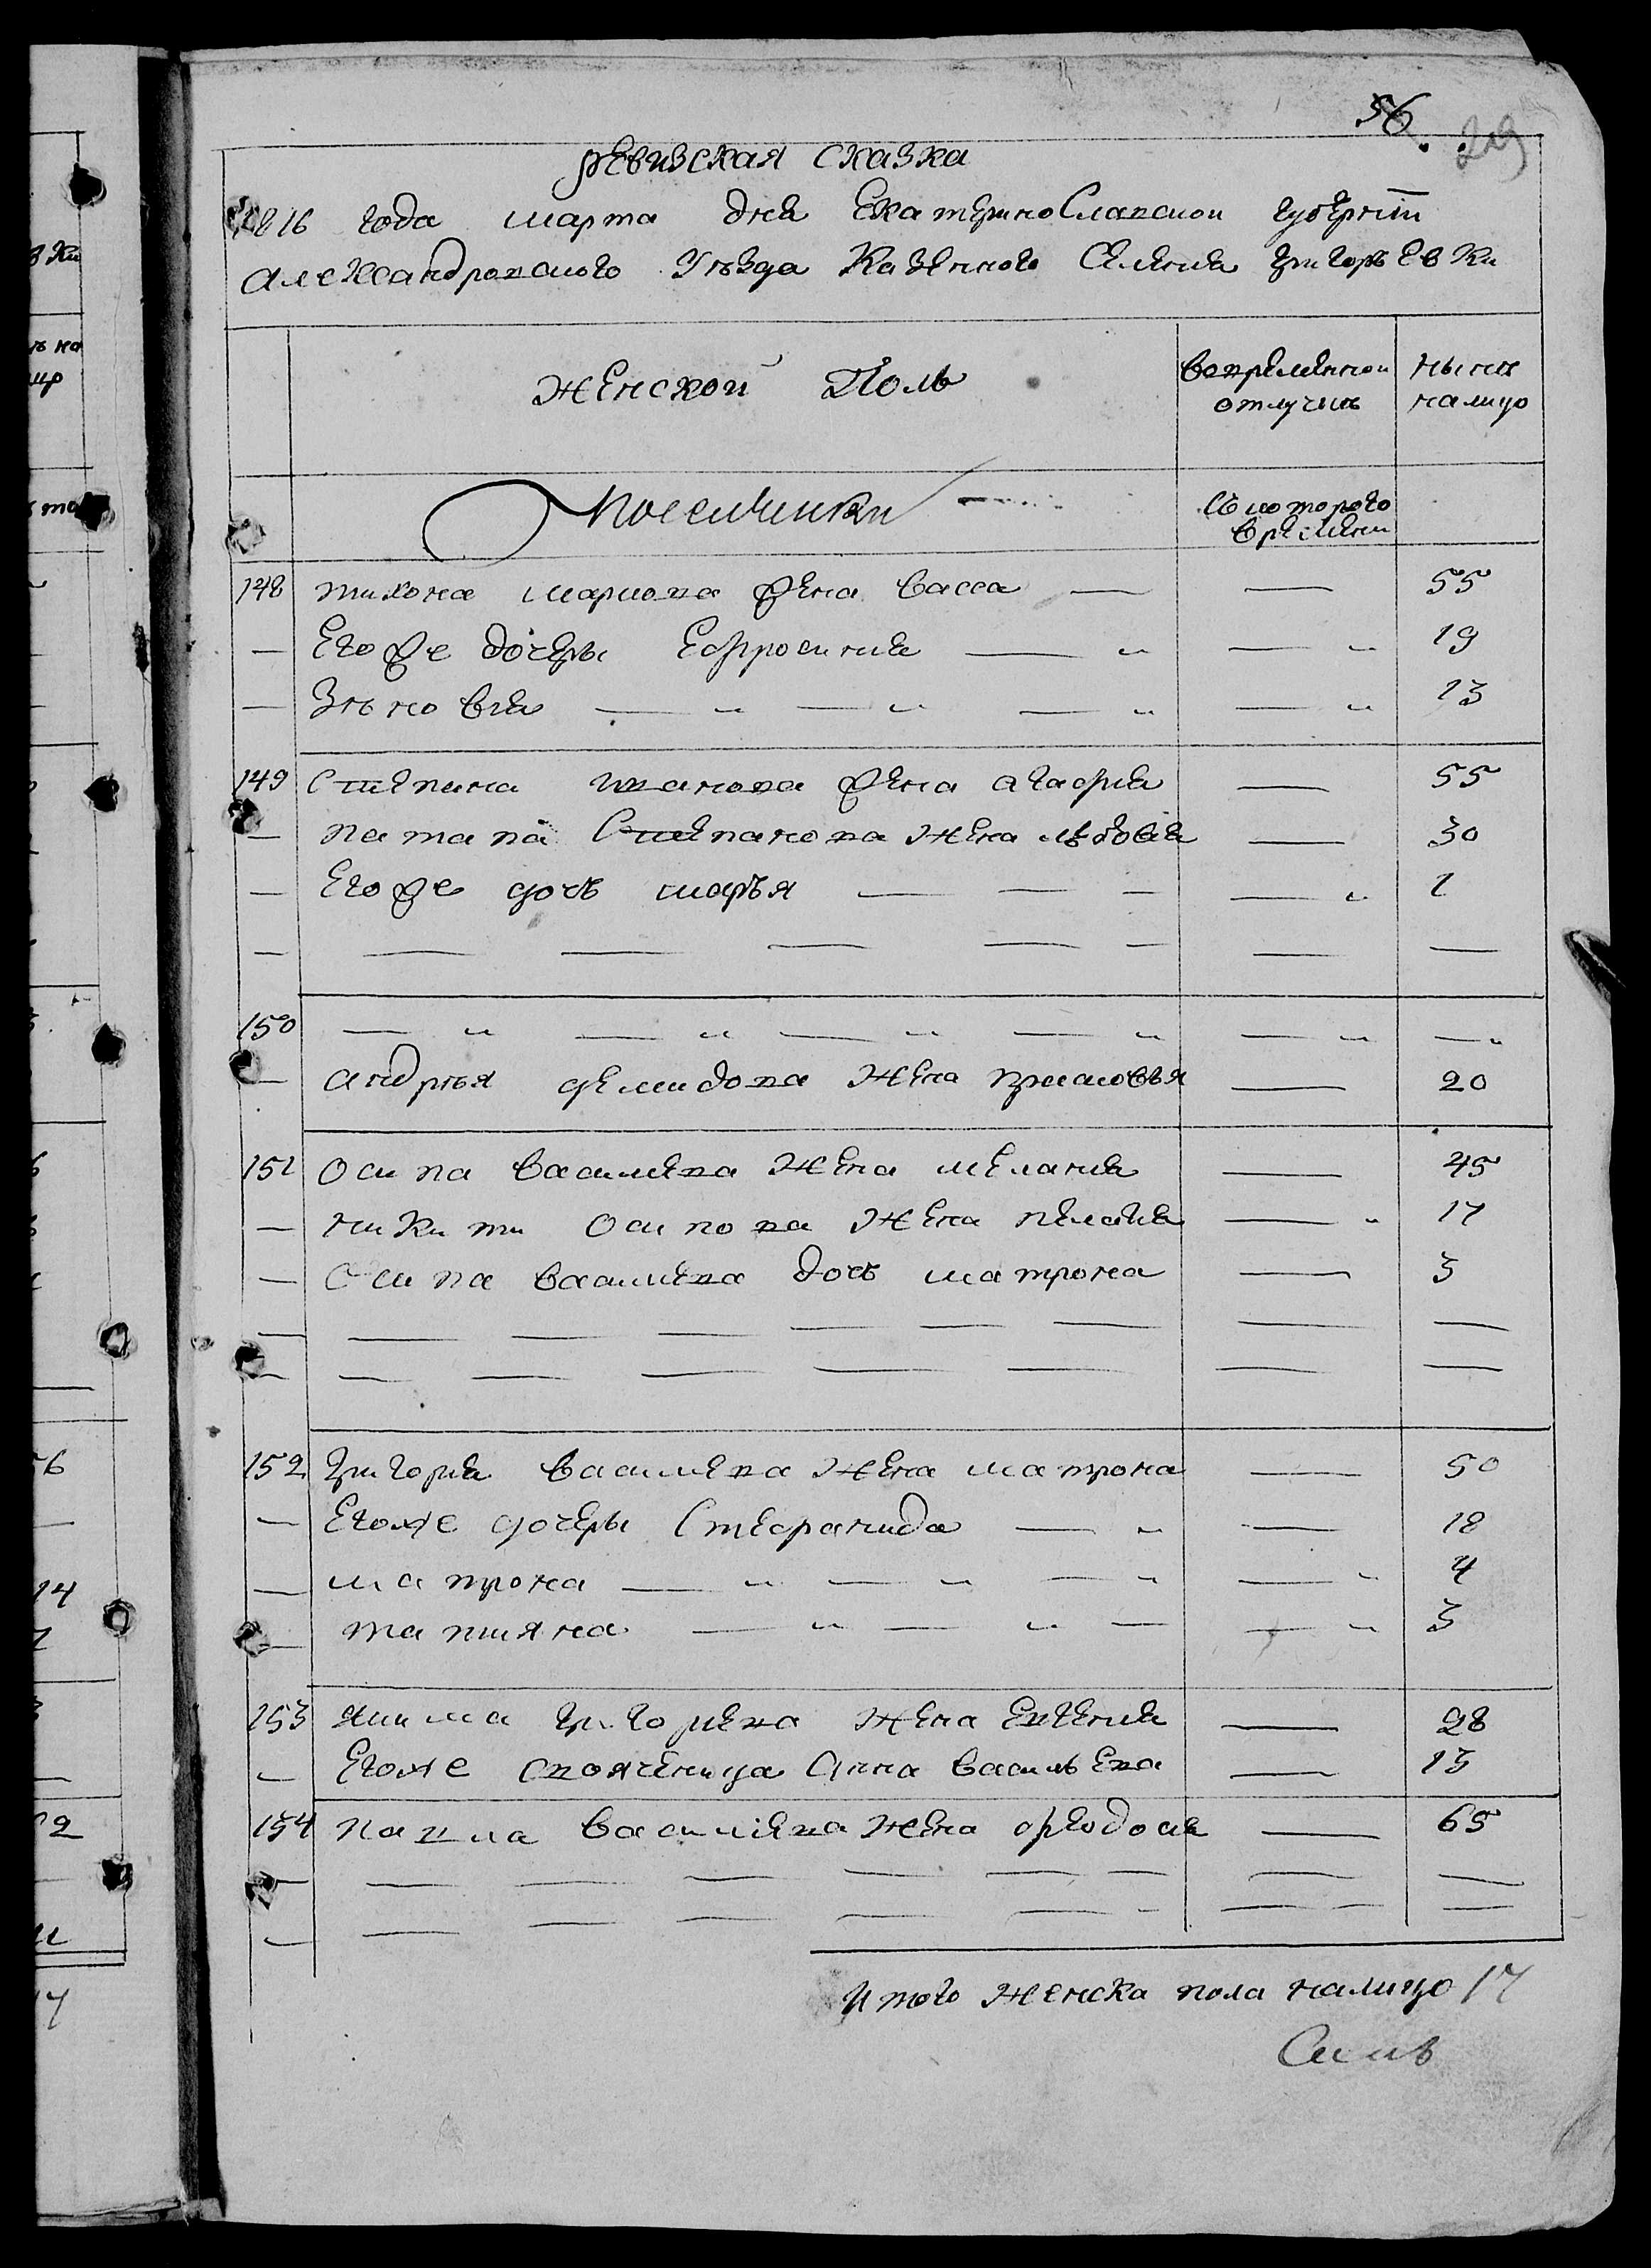 56
219
Ревизская сказка
1816 года марта дня Екатеринославской губернии
Александровского Уѣзда Казенного Селения Григорьевки
Женской Полъ
Вовременной отлучкѣ
Нынѣ налицо
Поселянки
Съ которого времени
148 Тихона Маркова жена Васса — — 55
— Егоже дочеры Ефросиния — „ — „ 19
— Зѣновия — „ — „ — „ — „ 13
149 Степана Иванова жена Агафия — 55
— Патапа Степанова жена Любовия — 30
— Егоже дочь Марья — — — — „ 1
— — — — — — — —
150 — „ — „ — „ — „ — „ — „
— Андрѣя Демидова жена Прасковья — 20
151 Осипа Васильева жена Мелания — 45
— Никиты Осипова жена Пелагия — „ 17
— Осипа Васильева дочь Матрона — 3
— — — — — — — — —
— — — — — — — —
152 Григория Васильева жена Матрона — 50
— Егоже дочеры Стефанида — „ — 18
— Матрона — „ — „ — „ — „ 4
— Татияна — „ — „ — — „ 3
153 Якима Григориева жена Евгения — 28
— Егоже своячѣница Анна Васильева — 13
154 Павла Василиева жена Феодосия — 65
— — — — — — — — —
— — — — — — — — — —
Итого женска пола налицо 17